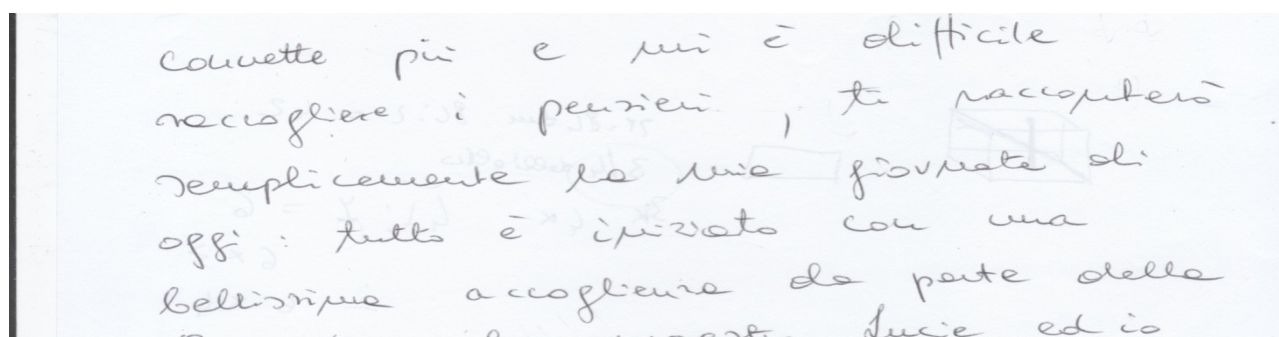 connette più e mi è difficile
raccogliere i pensieri, ti racconterò
semplicemente la mia giornata di
oggi: tutto è iniziato con una
bellissima accoglienza da parte della
Lucie ed io